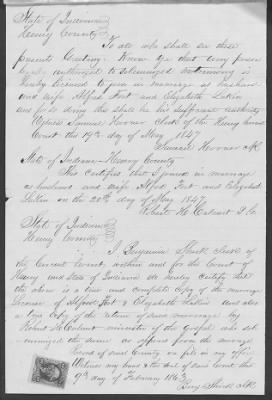 State of Indiana
Henry County
To all who shall see these
presents Greeting. Know ye that any person
legally authorized to solemnize matrimony is
hereby licensed to join in marriage as husband
and wife Alfred Fort and Elizabeth Lakin
and for so doing this shall be his sufficient authority
Witness Samuel Hoover Clerk of the Henry
Court this 19th day of May 1847
Samuel Hoover Clk
State of Indiana Henry County
This Certifies that I joined in marriage
as husband and wife Alfred Fort and Elizabeth
Lakin on the 20th day of May 1847
Robert H. Calvert
State of Indiana
Henry County
I Benjamin Shirk Clerk of
the Circuit Court within and for the County of
Henry and State of Indiana do hereby certify that
the above is a true and complete copy of the marriage
License of Alfred Fort & Elizabeth Lakin and also
a true Copy of the return of said marriage by
Robert H Calvert minister of the gospel who sol-
emnized the same as appears from the marriage
Record of said County on file in my office
Witness my hand & the seal of said Court this
9th day of February 1863
Benj Shirk Clk